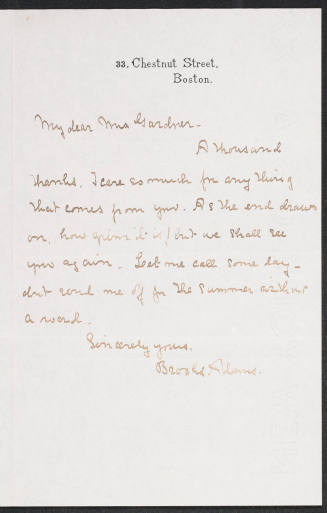 33, Chestnut Street,
Boston.
My dear Mrs Gardner -
A thousand
thanks. I care so much for any thing
that comes from you. As the end draws
on, how it is! but we shall see
you again. Let me call some day -
dont send me off for the summer without
a word.
Sincerely yours,
Brooks Adams.